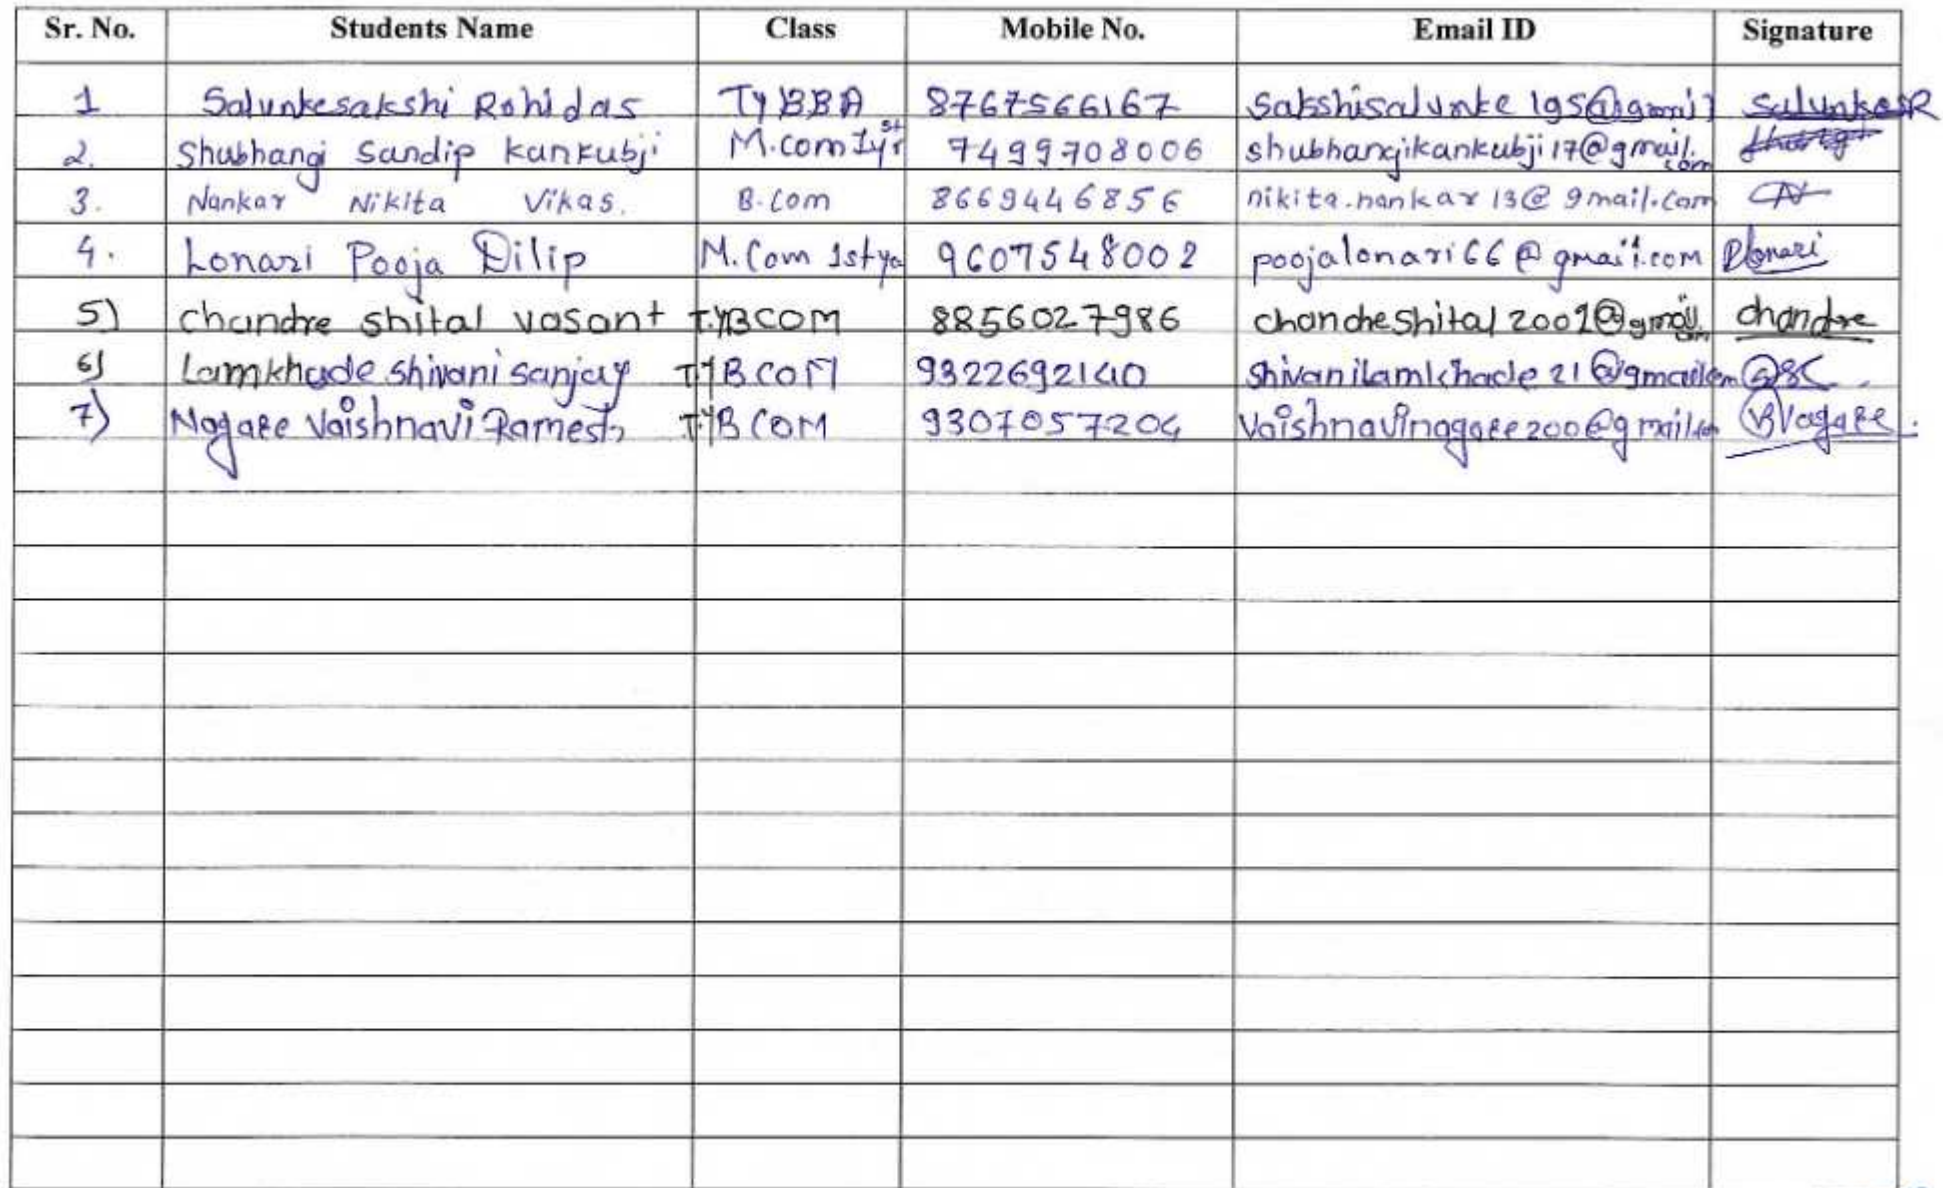 Sr. No. Students Name Class Mobile No. Email ID Signature
1 Salunkesakshi Rohidas TYBBA 8767566167 Sakshisalunke195@gmail SalunkeSR
2. Shubhangi Sandip Kankubji M.com Ist yr 7499708006 shubhangikankubji17@gmail.com
3. Nankar Nikita Vikas. B.Com 8669446856 nikita.nankar13@gmail.com
4. Lonari Pooja Dilip M.Com 1st ya 9607548002 poojalonari66@gmail.com Plonari
5) chandre shital vasant T.YBCOM 8856027986 chandreshital2001@gmail.com chandre
6) Lamkhade shivani sanjay T.YBCOM 9322692140 Shivanilamkhade21@gmail.com
7) Nagare Vaishnavi Ramesh T.YBCOM 9307057204 Vaishnavinagare200@gmail.com VNagare.